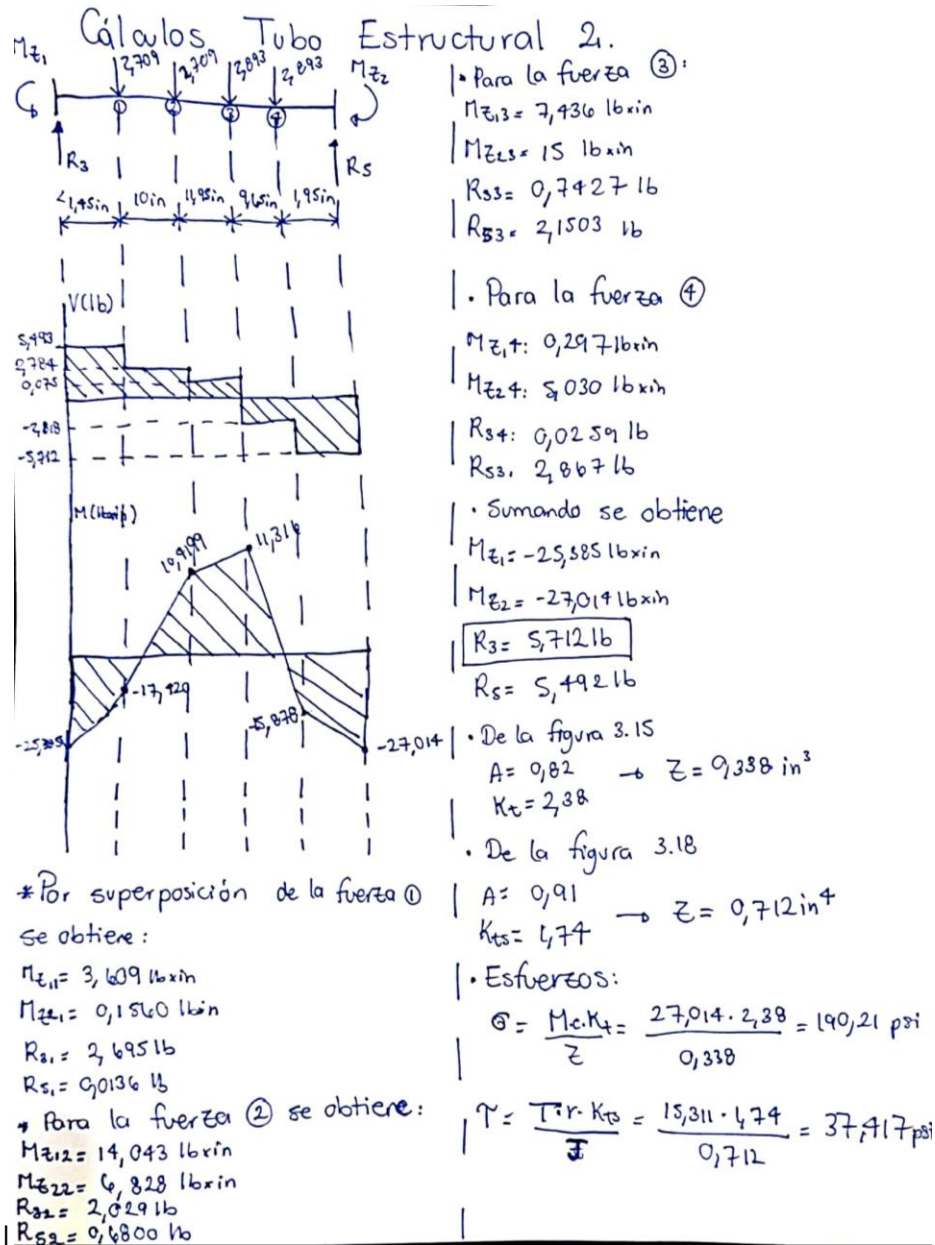 Cálculos Tubo Estructural 2.
Mz₁ 2,709 2,709 2,893 2,893 Mz₂
① ② ③ ④
R₃ R₅
1,45in 10in 11,95in 9,65in 1,95in
V(lb)
5,493
2,784
0,075
-2,818
-5,712
10,9199 11,316
-17,429
-5,878
-27,014
*Por superposición de la fuerza ①
se obtiene:
Mz₁₁= 3,609 lbxin
Mz₂₁= 0,1560 lbin
R₃₁= 2,695 lb
R₅₁= 0,0136 lb
* Para la fuerza ② se obtiene:
Mz₁₂= 14,043 lbxin
Mz₂₂= 6,828 lbxin
R₃₂= 2,029 lb
R₅₂= 0,6800 lb
• Para la fuerza ③:
Mz₁3= 7,436 lbxin
Mz₂3= 15 lbxin
R₃3= 0,7427 lb
R₅3= 2,1503 lb
• Para la fuerza ④
Mz₁4: 0,297 lbxin
Mz₂4: 5,030 lbxin
R₃4: 0,0259 lb
R₅3. 2,867 lb
• Sumando se obtiene
Mz₁= -25,385 lbxin
Mz₂= -27,014 lbxin
R₃= 5,712 lb
R₅= 5,492 lb
• De la figura 3.15
A= 0,82 → Z= 0,338 in³
Kt= 2,38
• De la figura 3.18
A= 0,91
Kts= 1,74 → Z= 0,712 in⁴
• Esfuerzos:
σ= Mc.Kt/Z = 27,014 · 2,38/0,338 = 190,21 psi
τ= T·r·Kts/J = 15,311 · 1,74/0,712 = 37,417 psi